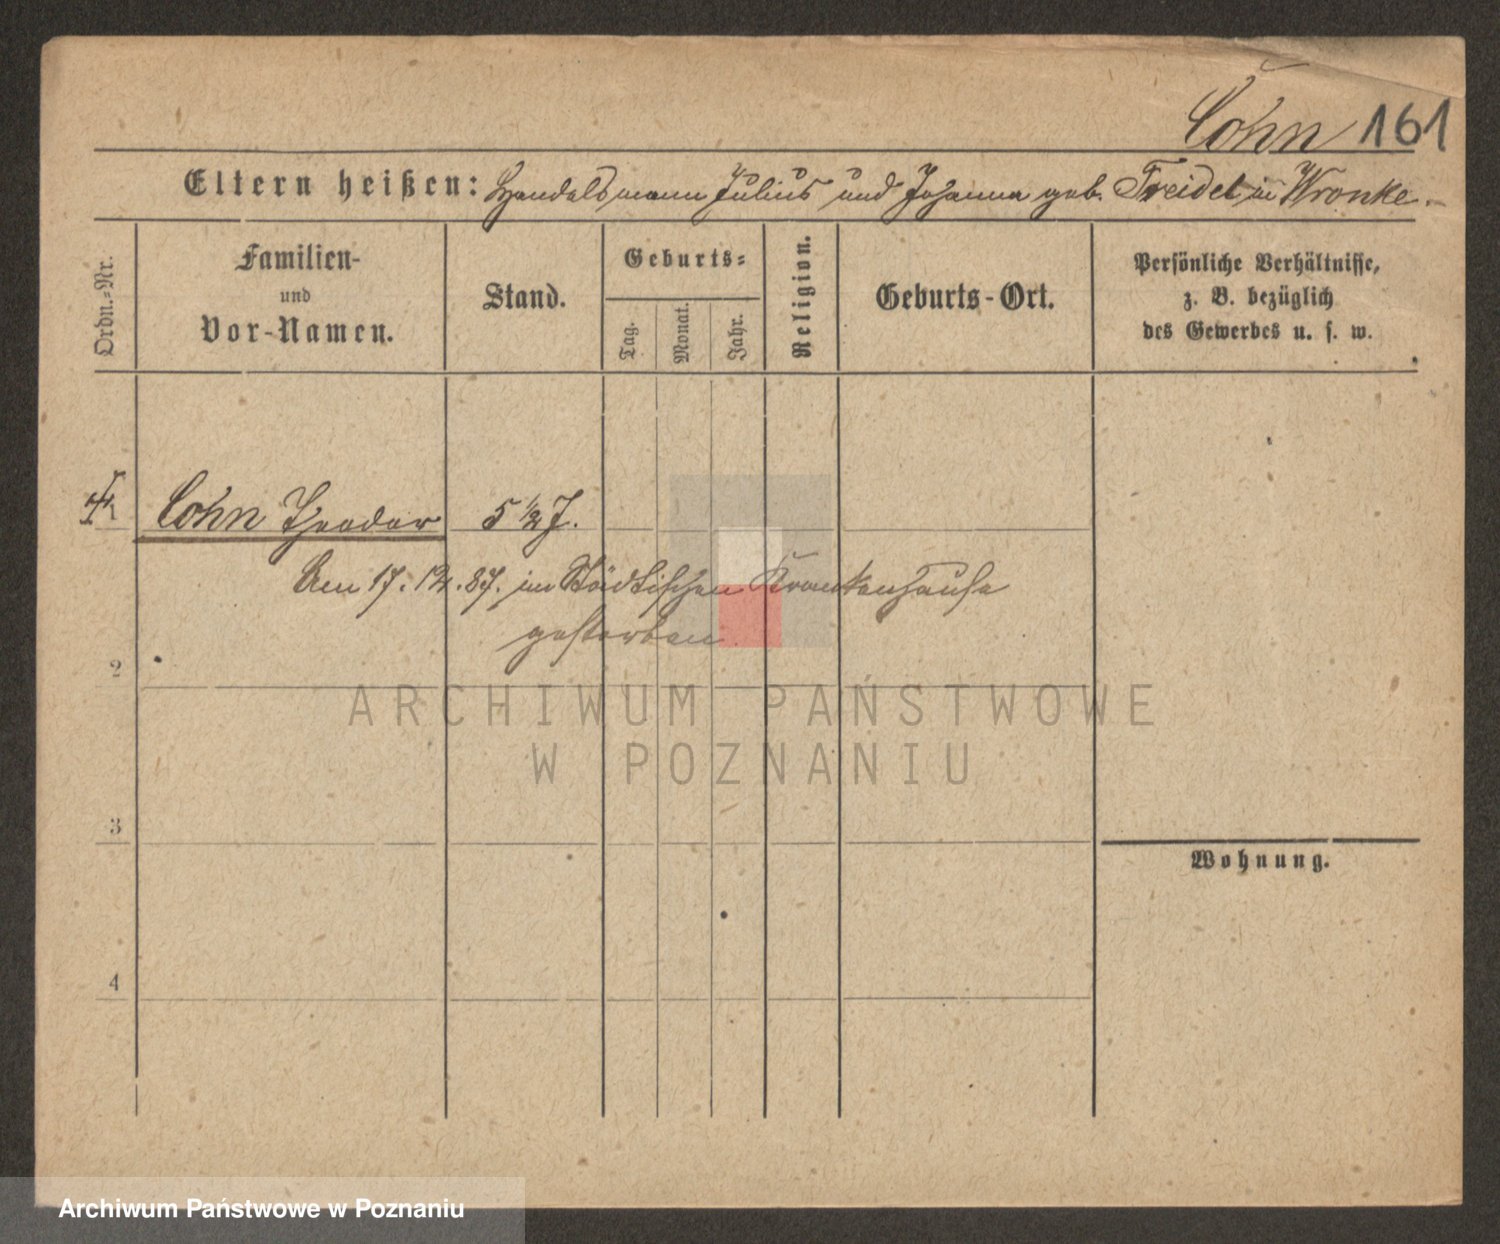 Cohn 161
Eltern heißen: Handelsmann Julius und Johanna geb. Freidel in Wronke.
Ordn.-Nr.
Familien-
und
Vor-Namen.
Stand.
Geburts-
Tag.
Monat.
Jahr.
Religion.
Geburts-Ort.
Persönliche Verhältnisse,
z. B. bezüglich
des Gewerbes u. s. w.
1 Cohn Theodor 5 1/2 J.
Am 17. 12. 87. im Städtischen Krankenhause
gestorben
2
ARCHIWUM PAŃSTWOWE
W POZNANIU
3
Wohnung.
4
Archiwum Państwowe w Poznaniu